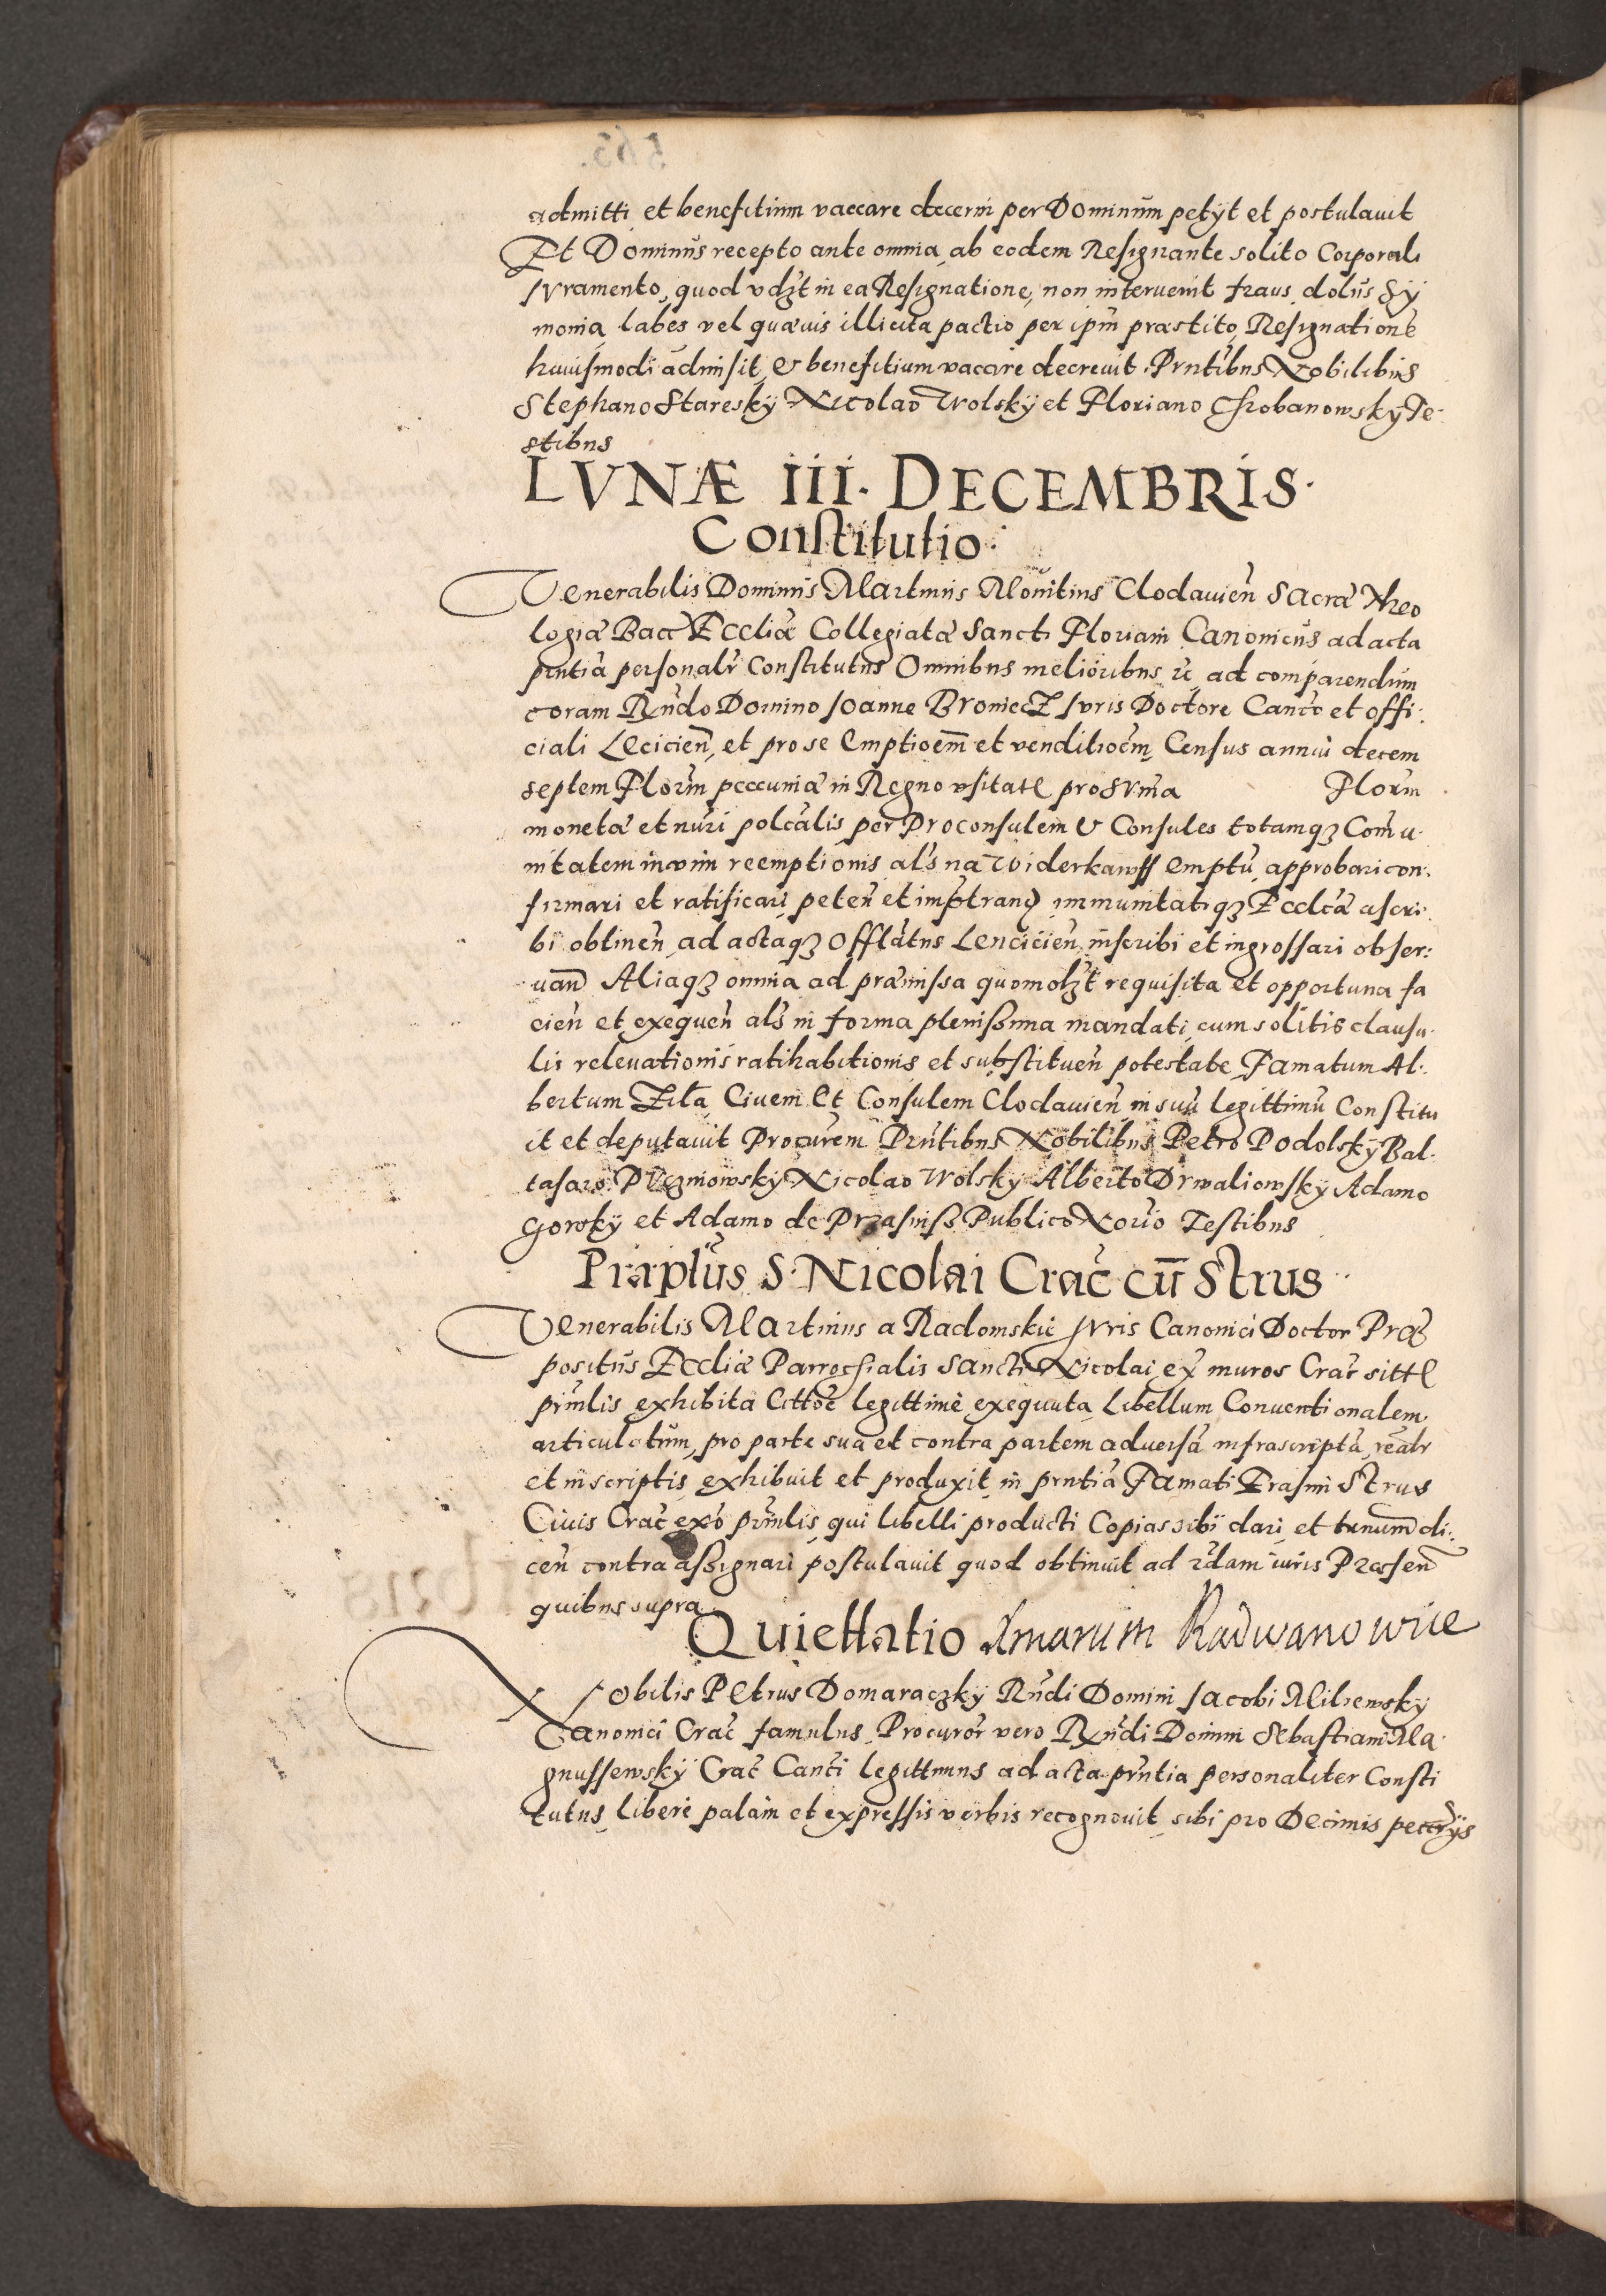 admitti et benefitium vaccare decerni per Dominum petÿt et postulauit
Et Dominus recepto ante omnia ab eodem Resignante solito Corporali
Iuramento, quod vdzt in ea Resignatione, non interuenit fraus dolus Sÿ
monia labes vel quæuis illicita pactio per ipm præstito Resignatione
huiusmodi admisit, & benefitium vacare decreuit Pntibus Nobilibus
Stephano Staresky Nicolao Wolskÿ et Floriano Chobanowskÿ Te-
stibus
LVNÆ III. DECEMBRIS.
Constitutio.
Venerabilis Dominus Martinus Clodauien Sacræ Theo
logiæ Bacc Ecclīæ Collegiatæ Sancti Floriani Canonicus ad acta
pntia personalr Constitutus Omnibus melioribus ꝛc ad comparendum
coram Rndo Domino Joanne Broniecz Iuris Doctore Canco et offi:
ciali Lecicien, et pro se Emptioem et venditioem Census annui decem
septem Florm peccuniæ in Regno vsitate pro Suma Florm
monetæ et nūri polcalis per Proconsulem & Consules totamqz Comu-
nitatem in vim reemptionis als na widerkauff emptu approbari con-
firmari et ratificari peten et imptrand immunitatiqz Ecclcæ ascri-
bi obtinen ad actaqz Offlatus Lencicien inscribi et ingrossari obser:
uan Aliaqz omnia ad præmissa quomolzt requisita et opportuna fa
cien et exequen als in forma plenissima mandati cum solitis clausu-
lis releuationis ratihabitionis et substituen potestate Famatum Al-
bertum Zila Ciuem Et Consulem Clodauien in suu legittimu Constitu
it et deputauit Procurem Prntibus Nobilibus Petro Podolskÿ Bal-
tasaro Nicolao Wolskÿ Alberto Drwaliowskÿ Adamo
Gorskÿ et Adamo de Przasniss Publico Norio Testibus
Præptus S. Nicolai Crac cū Strus
Venerabilis Martinus a Radomskie Iuris Canonici Doctor Præ
positus Eccliæ Parrochialis Sancti Nicolai ex muros Crac sitte
prnlis exhibita Cittoe legittime exequuta Libellum Conuentionalem
articulatum, pro parte sua et contra partem aduersa infrascripta realr
et in scriptis exhibuit et produxit in prntia Famati Erasmi Strus
Ciuis Crac exo prnlis, qui libelli producti Copias sibi dari et tnnum di:
cen contra assignari postulauit quod obtinuit ad rdam iuris Præsen
quibus supra
Quiettatio Xmarum Radwanowice
Nobilis Petrus Domaraczkÿ Rndi Domini Jacobi Miliewskÿ
Canonici Crac famulus Procuror vero Rndi Domini Sebastiani Ma-
gnussewskÿ Crac Canci legittimus ad acta prntia personaliter Consti
tutus libere palam et expressis verbis recognouit sibi pro Decimis peccrÿs